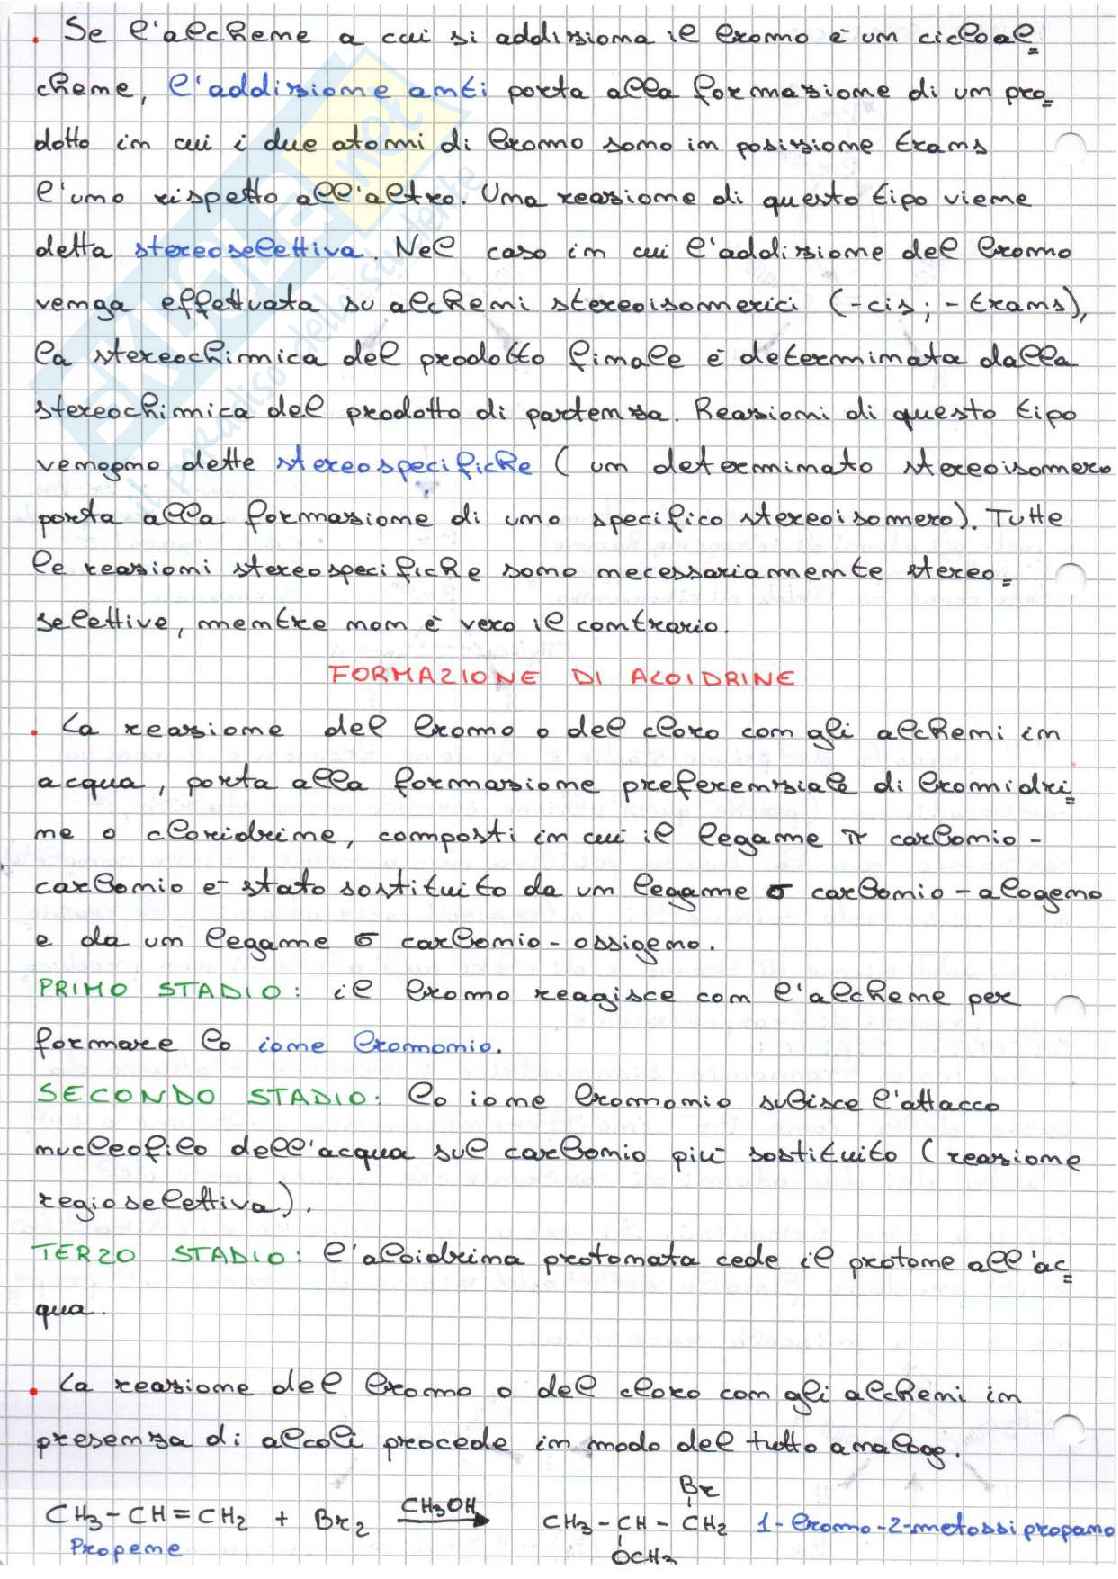 . Se l'alchene a cui si addiziona il bromo è un cicloal=
chene, l'addizione anti porta alla formazione di un pro=
dotto in cui i due atomi di bromo sono in posizione trans
l'uno rispetto all'altro. Una reazione di questo tipo viene
detta stereoselettiva. Nel caso in cui l'addizione del bromo
venga effettuata su alcheni stereoisomerici (-cis; -trans),
la stereochimica del prodotto finale è determinata dalla
stereochimica del prodotto di partenza. Reazioni di questo tipo
vengono dette stereospecifiche (un determinato stereoisomero
porta alla formazione di uno specifico stereoisomero). Tutte
le reazioni stereospecifiche sono necessariamente stereo=
selettive, mentre non è vero il contrario.
FORMAZIONE DI ALOIDRINE
. La reazione del bromo o del cloro con gli alcheni in
acqua, porta alla formazione preferenziale di bromidri=
ne o cloridrine, composti in cui il legame π carbonio -
carbonio è stato sostituito da un legame σ carbonio - alogeno
e da un legame σ carbonio - ossigeno.
PRIMO STADIO: il bromo reagisce con l'alchene per
formare lo ione bromonio.
SECONDO STADIO: lo ione bromonio subisce l'attacco
nucleofilo dell'acqua sul carbonio più sostituito (reazione
regioselettiva).
TERZO STADIO: l'aloidrina protonata cede il protone all'ac=
qua.
. La reazione del bromo o del cloro con gli alcheni in
presenza di alcoli procede in modo del tutto analog.
Br
CH3 - CH = CH2 + Br2 CH3OH CH3 - CH - CH2 1-bromo-2-metossipropano
Propene OCH3